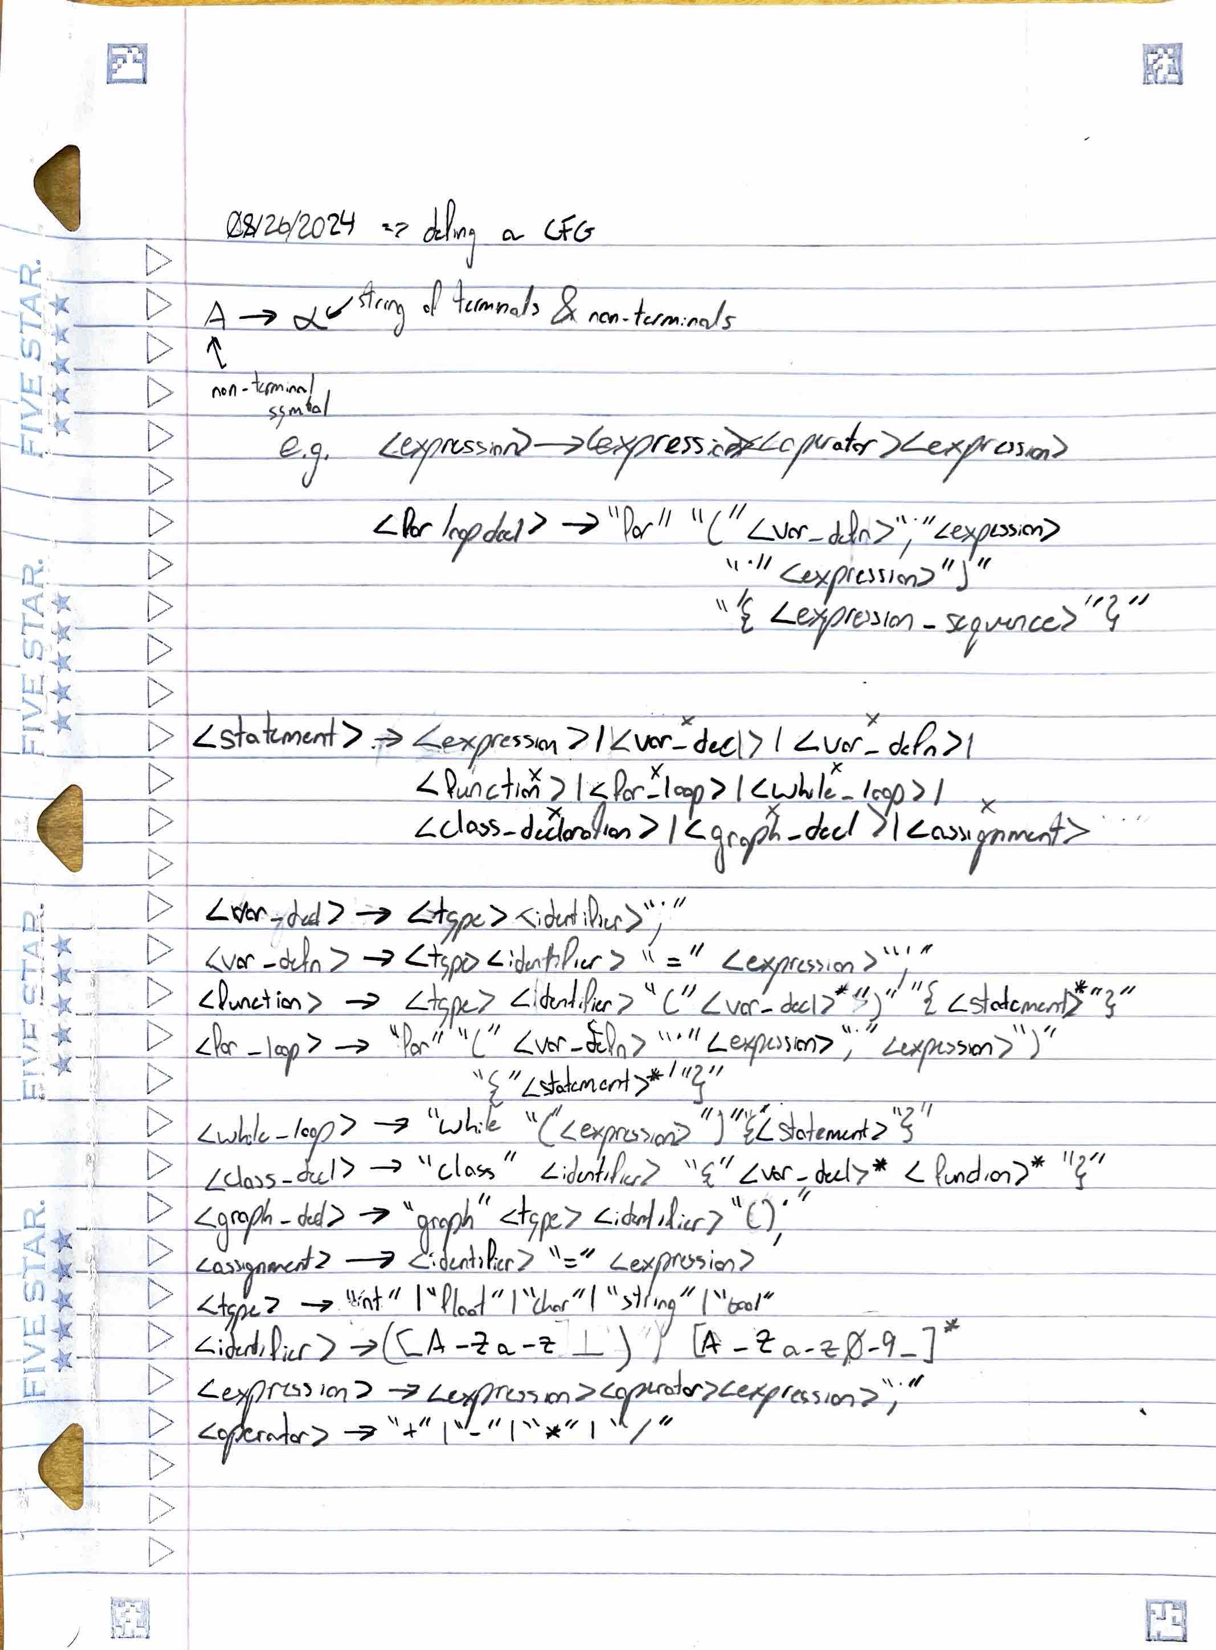 08/26/2024 => defing a CFG
A → α ↙ string of terminals & non-terminals
↑
non-terminal
symbol
e.g. <expression> → <expression><operator><expression>
<for loop decl> → "for" "(" <var_defn> ";" <expression>
";" <expression> ")"
"{ <expression_sequence> "}"
<statement> → <expression> | <var_decl> | <var_defn> |
<function> | <for_loop> | <while_loop> |
<class_declaration> | <graph_decl> | <assignment>
<var_decl> → <type> <identifier> ";"
<var_defn> → <type> <identifier> "=" <expression> ";"
<function> → <type> <identifier> "(" <var_decl>* ")" "{ <statement>* "}"
<for_loop> → "for" "(" <var_defn> ";" <expression> ";" <expression> ")"
"{" <statement>* "}"
<while_loop> → "while "( <expression> ")" "{ <statement> "}"
<class_decl> → "class" <identifier> "{" <var_decl>* <function>* "}"
<graph_decl> → "graph" <type> <identifier> "();"
<assignment> → <identifier> "=" <expression>
<type> → "int" | "float" | "char" | "string" | "bool"
<identifier> → ([A-Za-z _ ) [A-Za-z0-9_]*
<expression> → <expression><operator><expression> ";"
<operator> → "+" | "-" | "*" | "/"
FIVE STAR.
FIVE STAR.
FIVE STAR.
FIVE STAR.